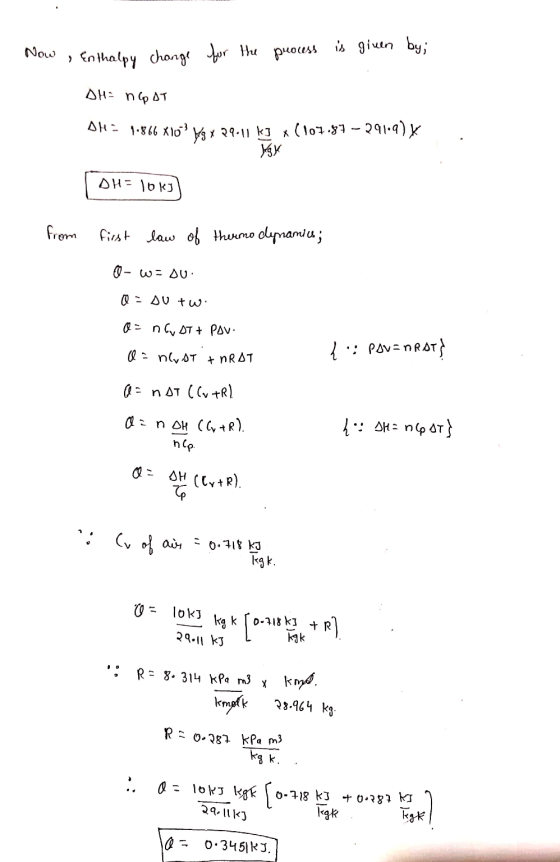 Now, Enthalpy change for the process is given by;
ΔH = nCpΔT
ΔH = 1.866 x10⁻³ kg x 29.11 kJ/kgK x (107.87 - 291.9) K
ΔH = 10 kJ
from first law of thermodynamics;
Q - W = ΔU.
Q = ΔU + W.
Q = nCvΔT + PΔV.
Q = nCvΔT + nRΔT {∵ PΔV = nRΔT}
Q = nΔT (Cv + R)
Q = n ΔH/nCp (Cv + R). {∵ ΔH = nCpΔT}
Q = ΔH/Cp (Cv + R).
∵ Cv of air = 0.718 kJ/kgk.
Q = 10kJ/29.11 kJ kgk [0.718 kJ/kgk + R]
∵ R = 8.314 kPa m3/kmolk x kmol/28.964 kg.
R = 0.287 kPa m3/kg k.
∴ Q = 10kJ kgk/29.11kJ [0.718 kJ/kgk + 0.287 kJ/kgk]
Q = 0.3451kJ.